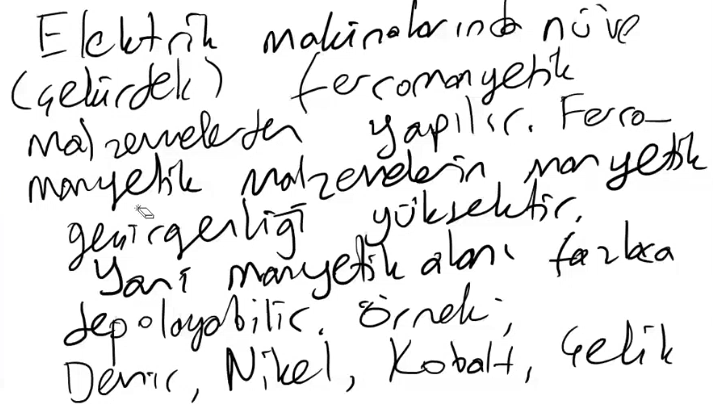 Elektrik makinalarında nüve
(Çekirdek) ferromanyetik
malzemelerden yapılır. Ferro-
manyetik malzemelerin manyetik
geçirgenliği yüksektir.
Yani manyetik alanı fazlaca
depolayabilir. Örnek;
Demir, Nikel, Kobalt, Çelik